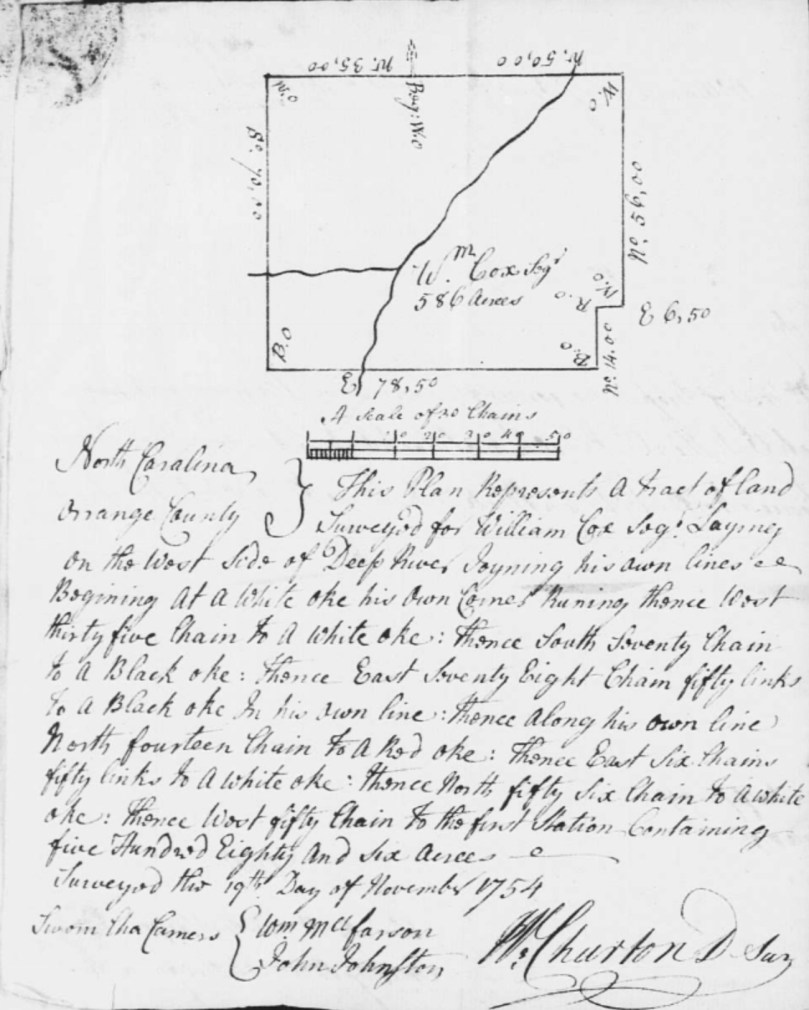 W. 35,00
W. 50,00
W.o
Beg: W.o
W.o
So. 70,00
No. 56,00
Wm Cox Esqr
586 Acres
W.o
R.o
E 6,50
B.o
B.o
No. 14.00
E 78,50
A Scale of 20 Chains
10 20 30 40 50
North Carolina
Orrange County } This Plan Represents A tract of land
Surveyed for William Cox Esqr. Laying
on the West Side of Deep River Joyning his own lines
Begining At A White oke his own Corner Runing thence West
thirty five Chain to A White oke: thence South Seventy Chain
to A Black oke: thence East Seventy Eight Chain fifty links
to A Black oke In his own line: thence Along his own line
North fourteen Chain to A Red oke: thence East Six Chains
fifty links to A white oke: thence North fifty Six Chain to A white
oke: thence West fifty Chain to the first Station Containing
five Hundred Eighty And Six Acrees
Surveyed this 19th Day of November 1754
Sworn Cha Carriers { Wm McFarson
John Johnston
Wm Churton D Sur